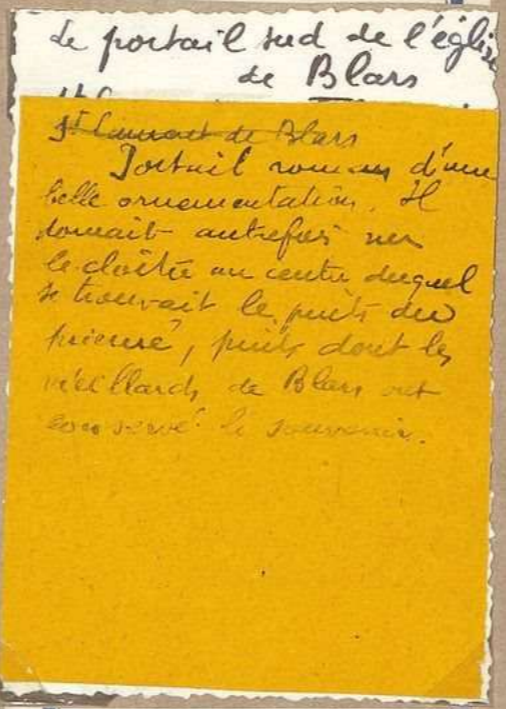 Le portail sud de l'église
de Blars
St Laurent de Blars
Portail roman d'une
belle ornementation. Il
donnait autrefois vers
le cloître au centre duquel
se trouvait le puits du
prieuré, puits dont les
vieillards de Blars ont
conservé le souvenir.